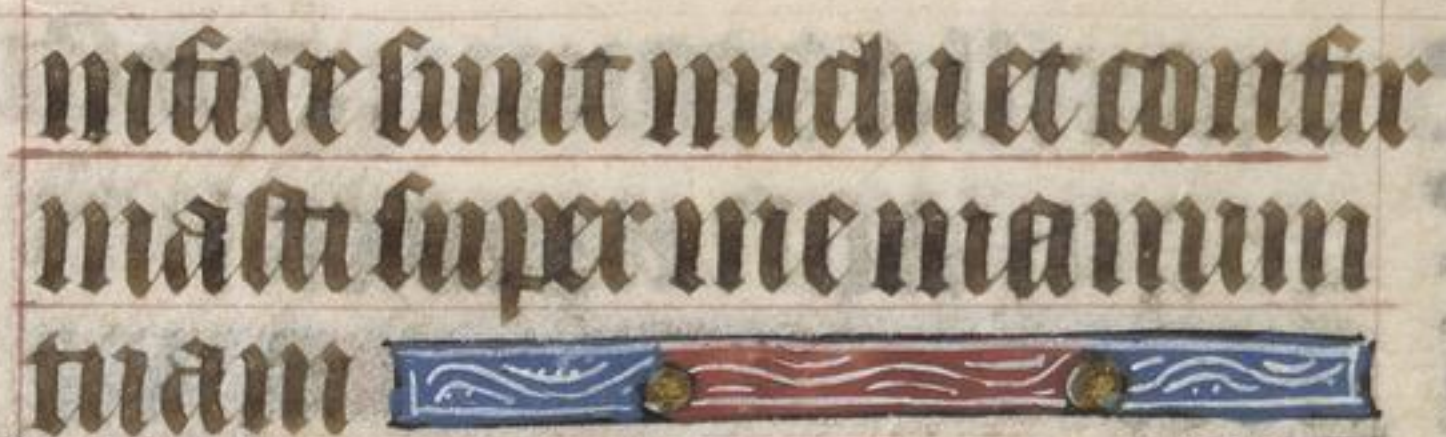 infixe sunt michi et confir
masti super me manum
tuam